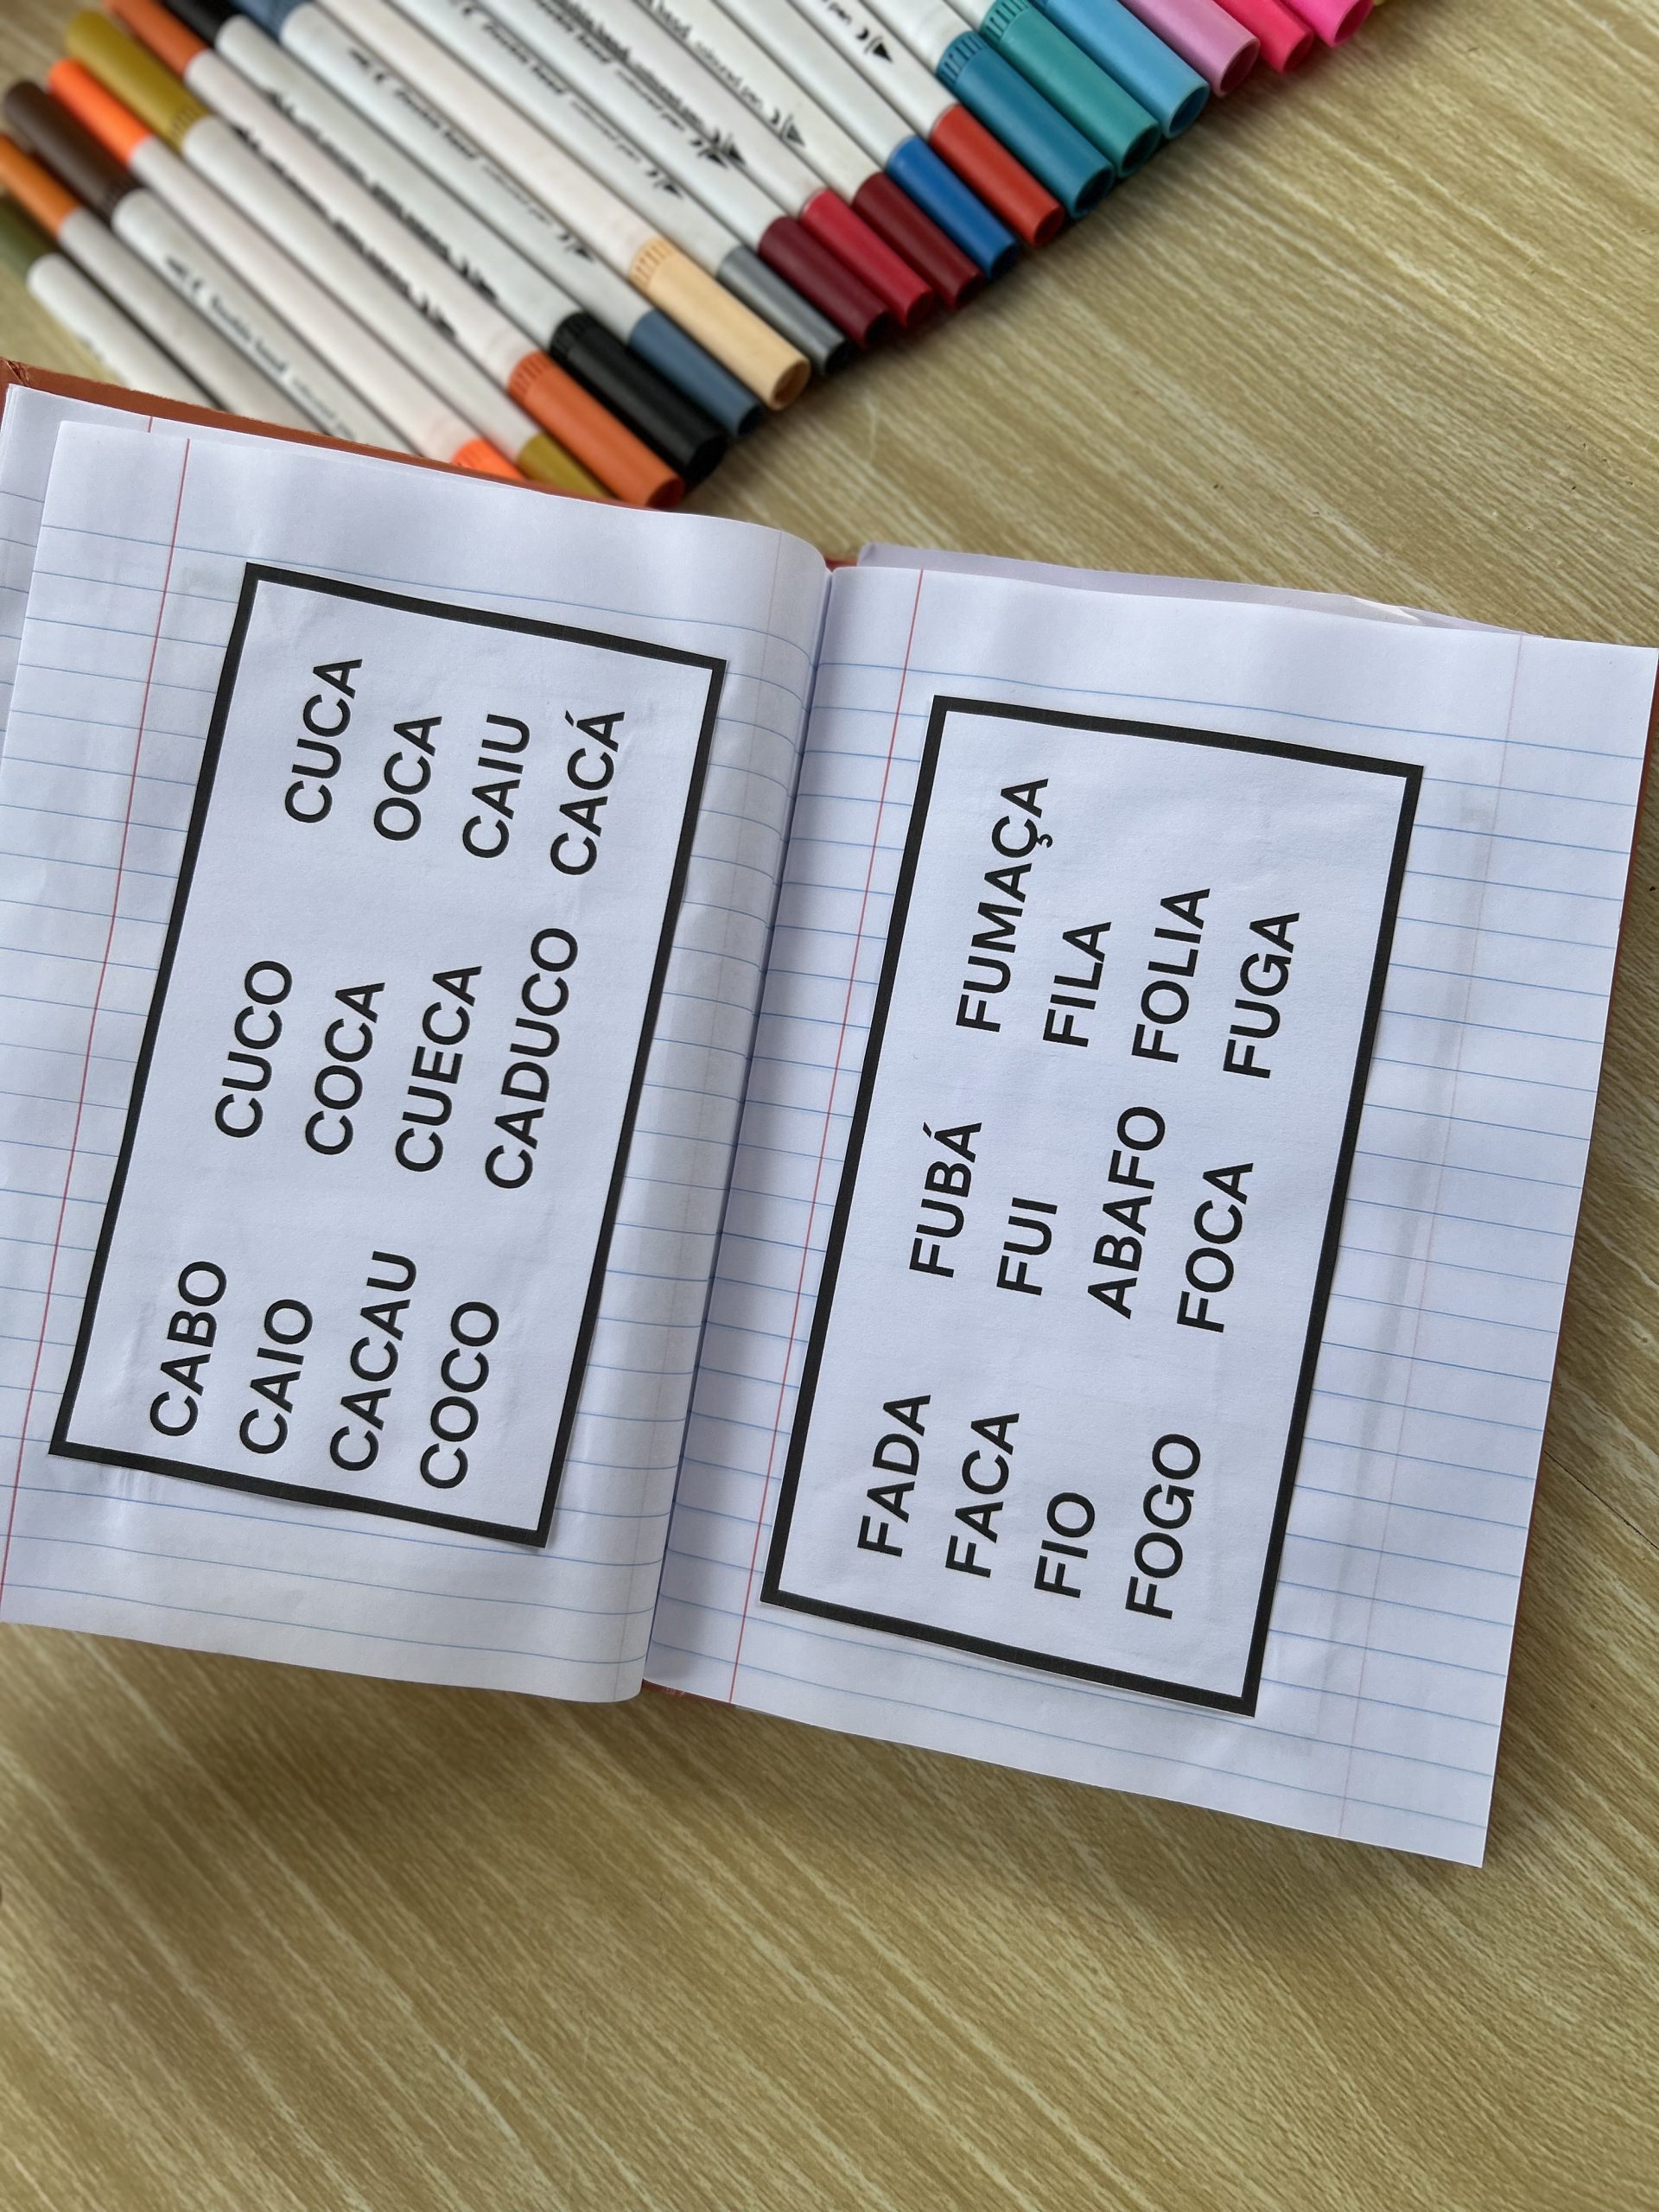 CABO CUCO CUCA
CAIO COCA OCA
CACAU CUECA CAIU
COCO CADUCO CACÁ
FADA FUBÁ FUMAÇA
FACA FUI FILA
FIO ABAFO FOLIA
FOGO FOCA FUGA